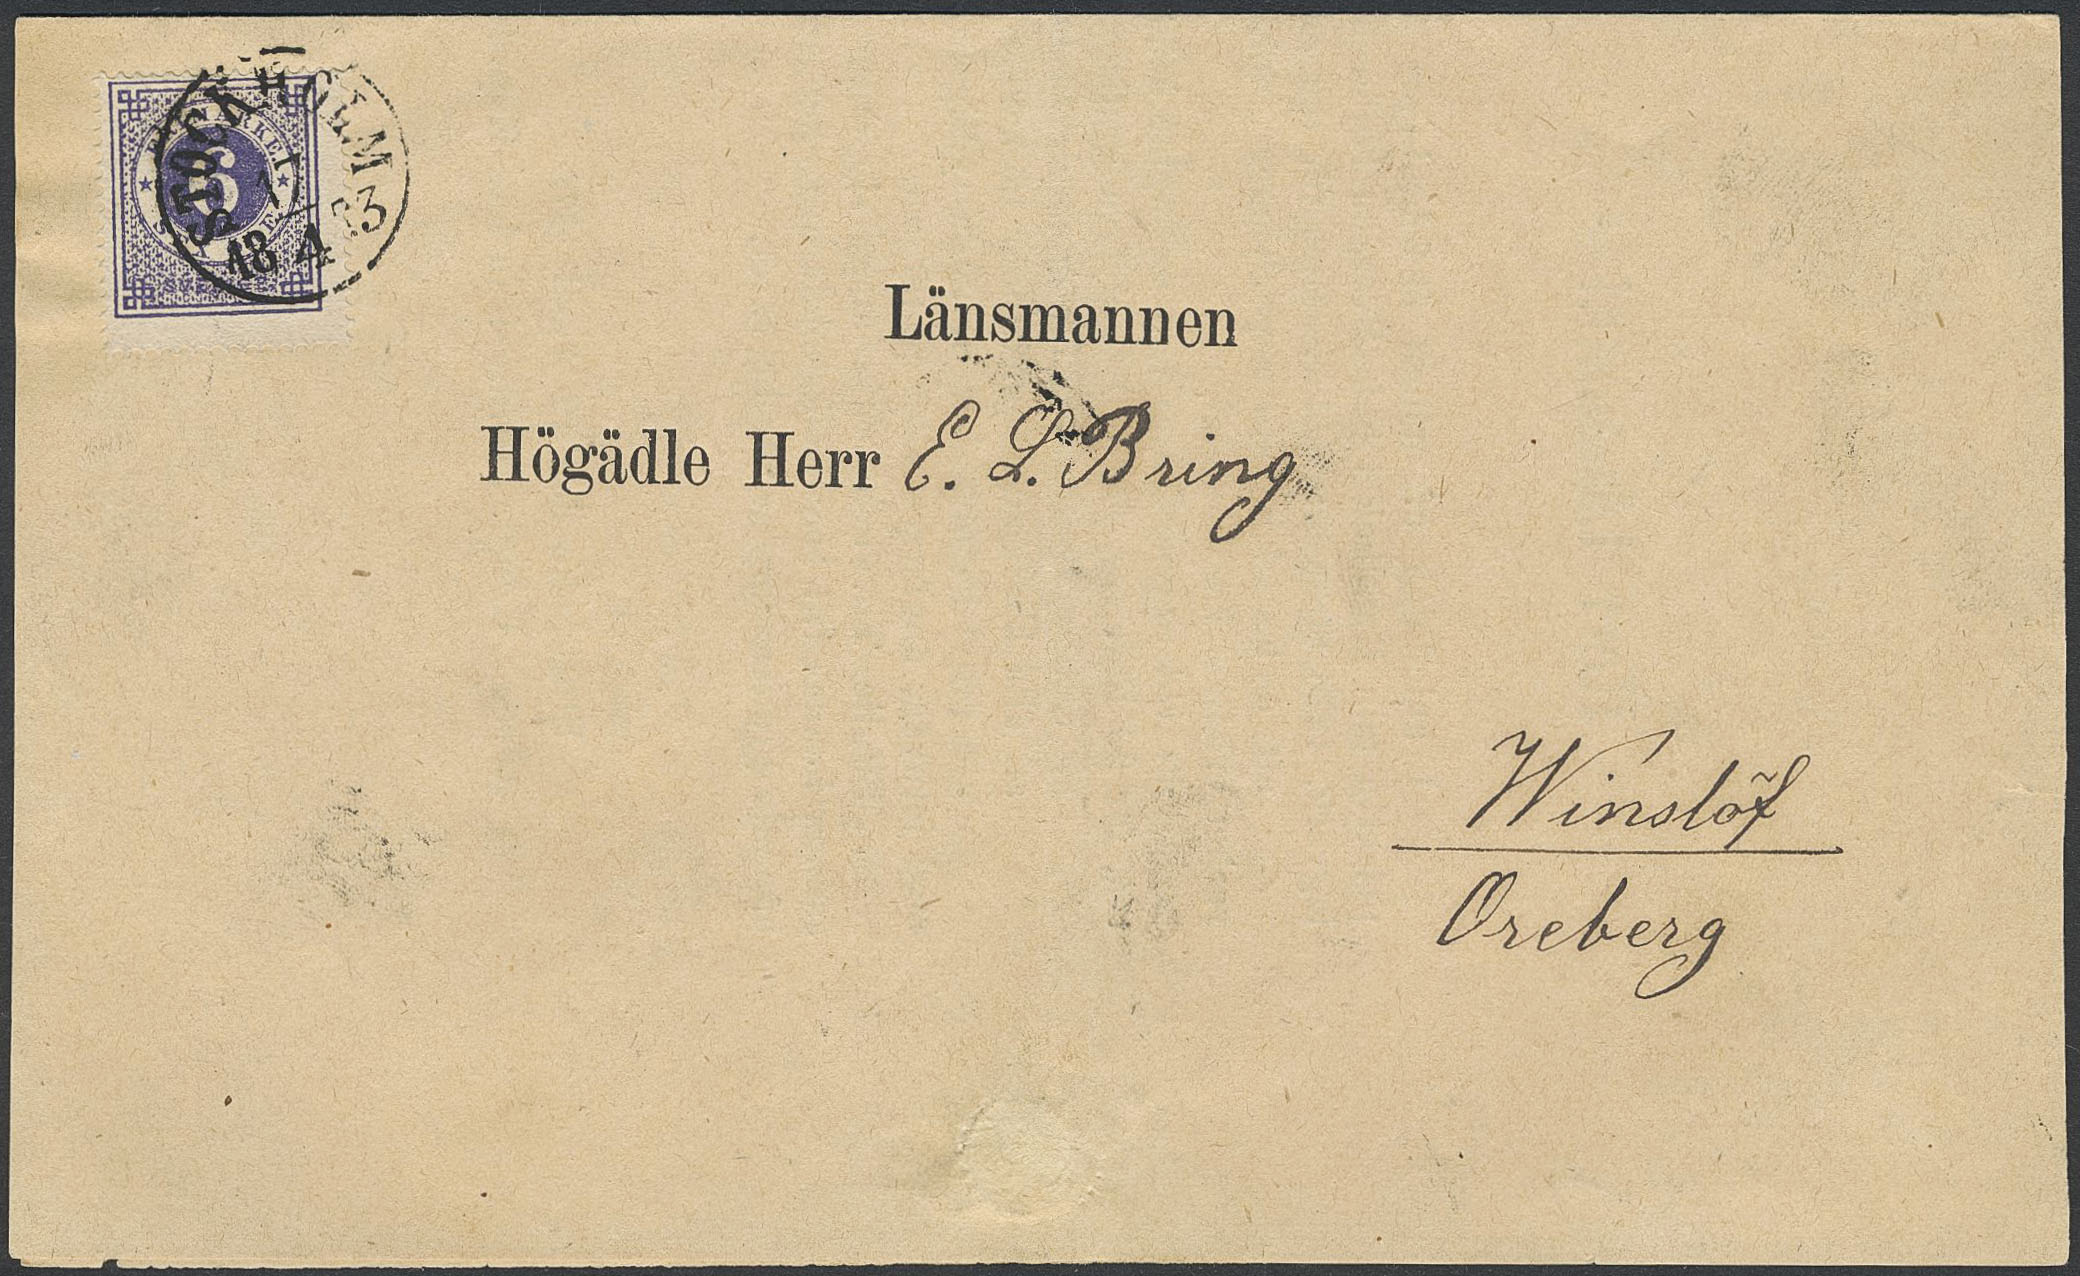 STOCKHOLM
1
18 4 3
6
Länsmannen
Högädle Herr E. L. Bring
Winslöf
Oreberg